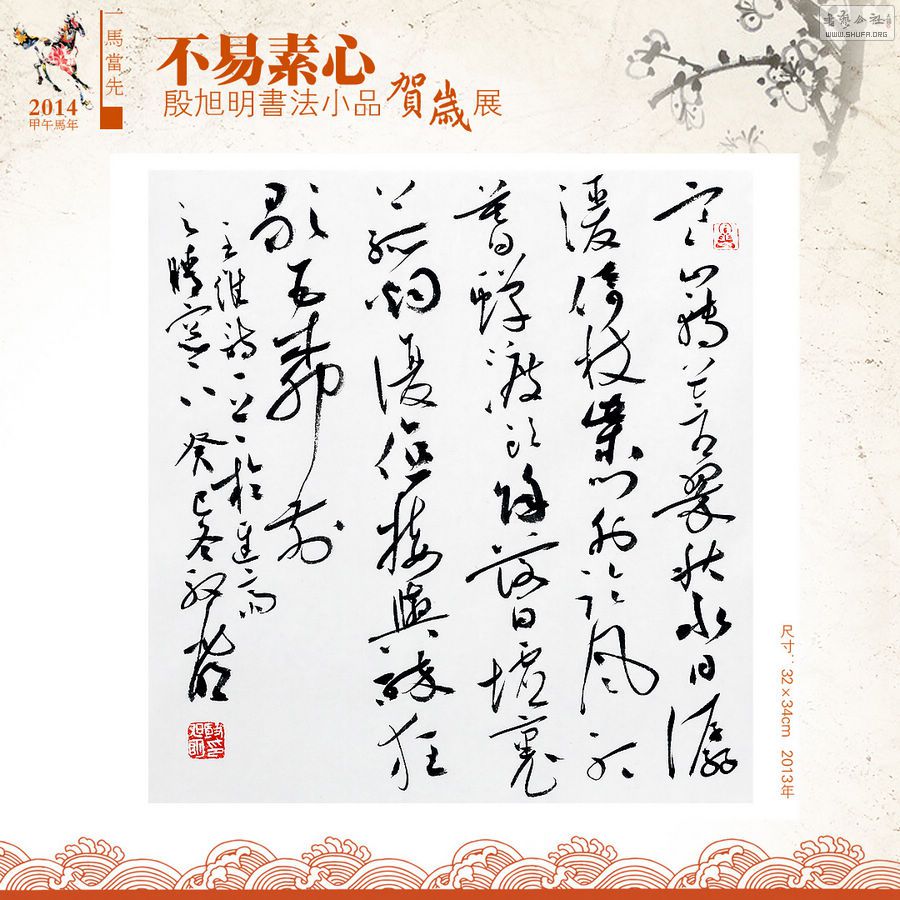 一馬當先
2014
甲午馬年
不易素心
殷旭明書法小品賀歲展
書藝公社
WWW.SHUFA.ORG
寒山轉蒼翠秋水日潺
湲倚杖柴門外臨風聽
暮蟬渡頭餘落日墟裏
上孤烟復值接輿醉狂
歌五柳前
王維詩一首於
之晴窗下癸巳冬初旭明
尺寸:32×34cm 2013年